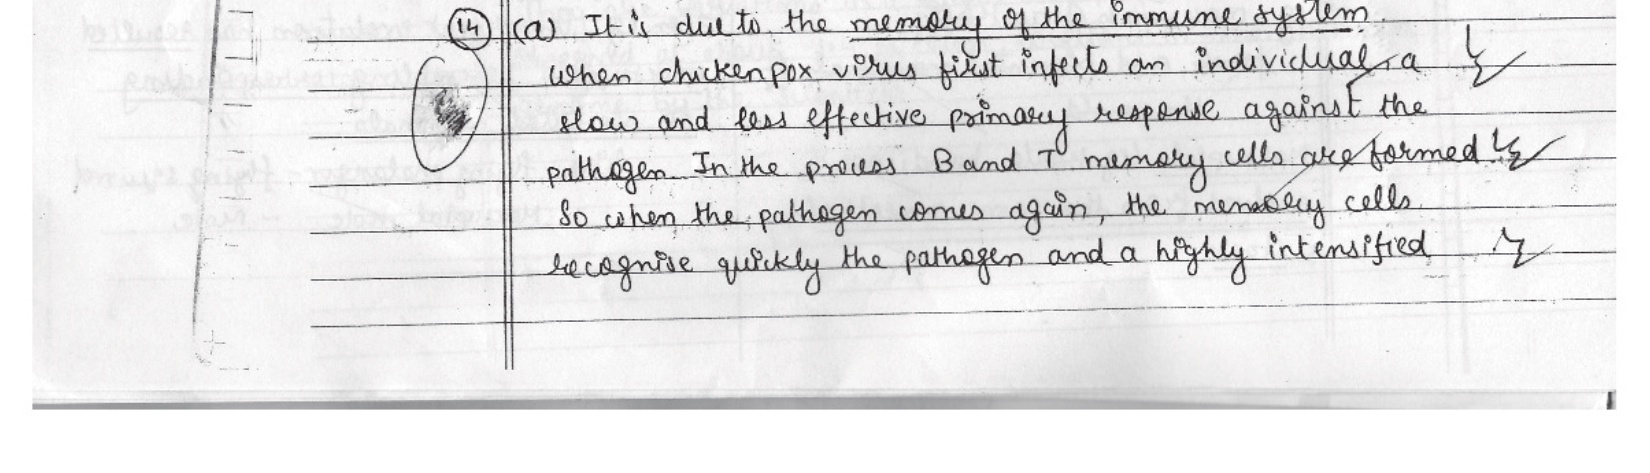 14 (a) It is due to the memory of the immune system.
when chickenpox virus first infects an individual, a
slow and less effective primary response against the
pathogen. In the process B and T memory cells are formed
So when the pathogen comes again, the memory cells
recognise quickly the pathogen and a highly intensified